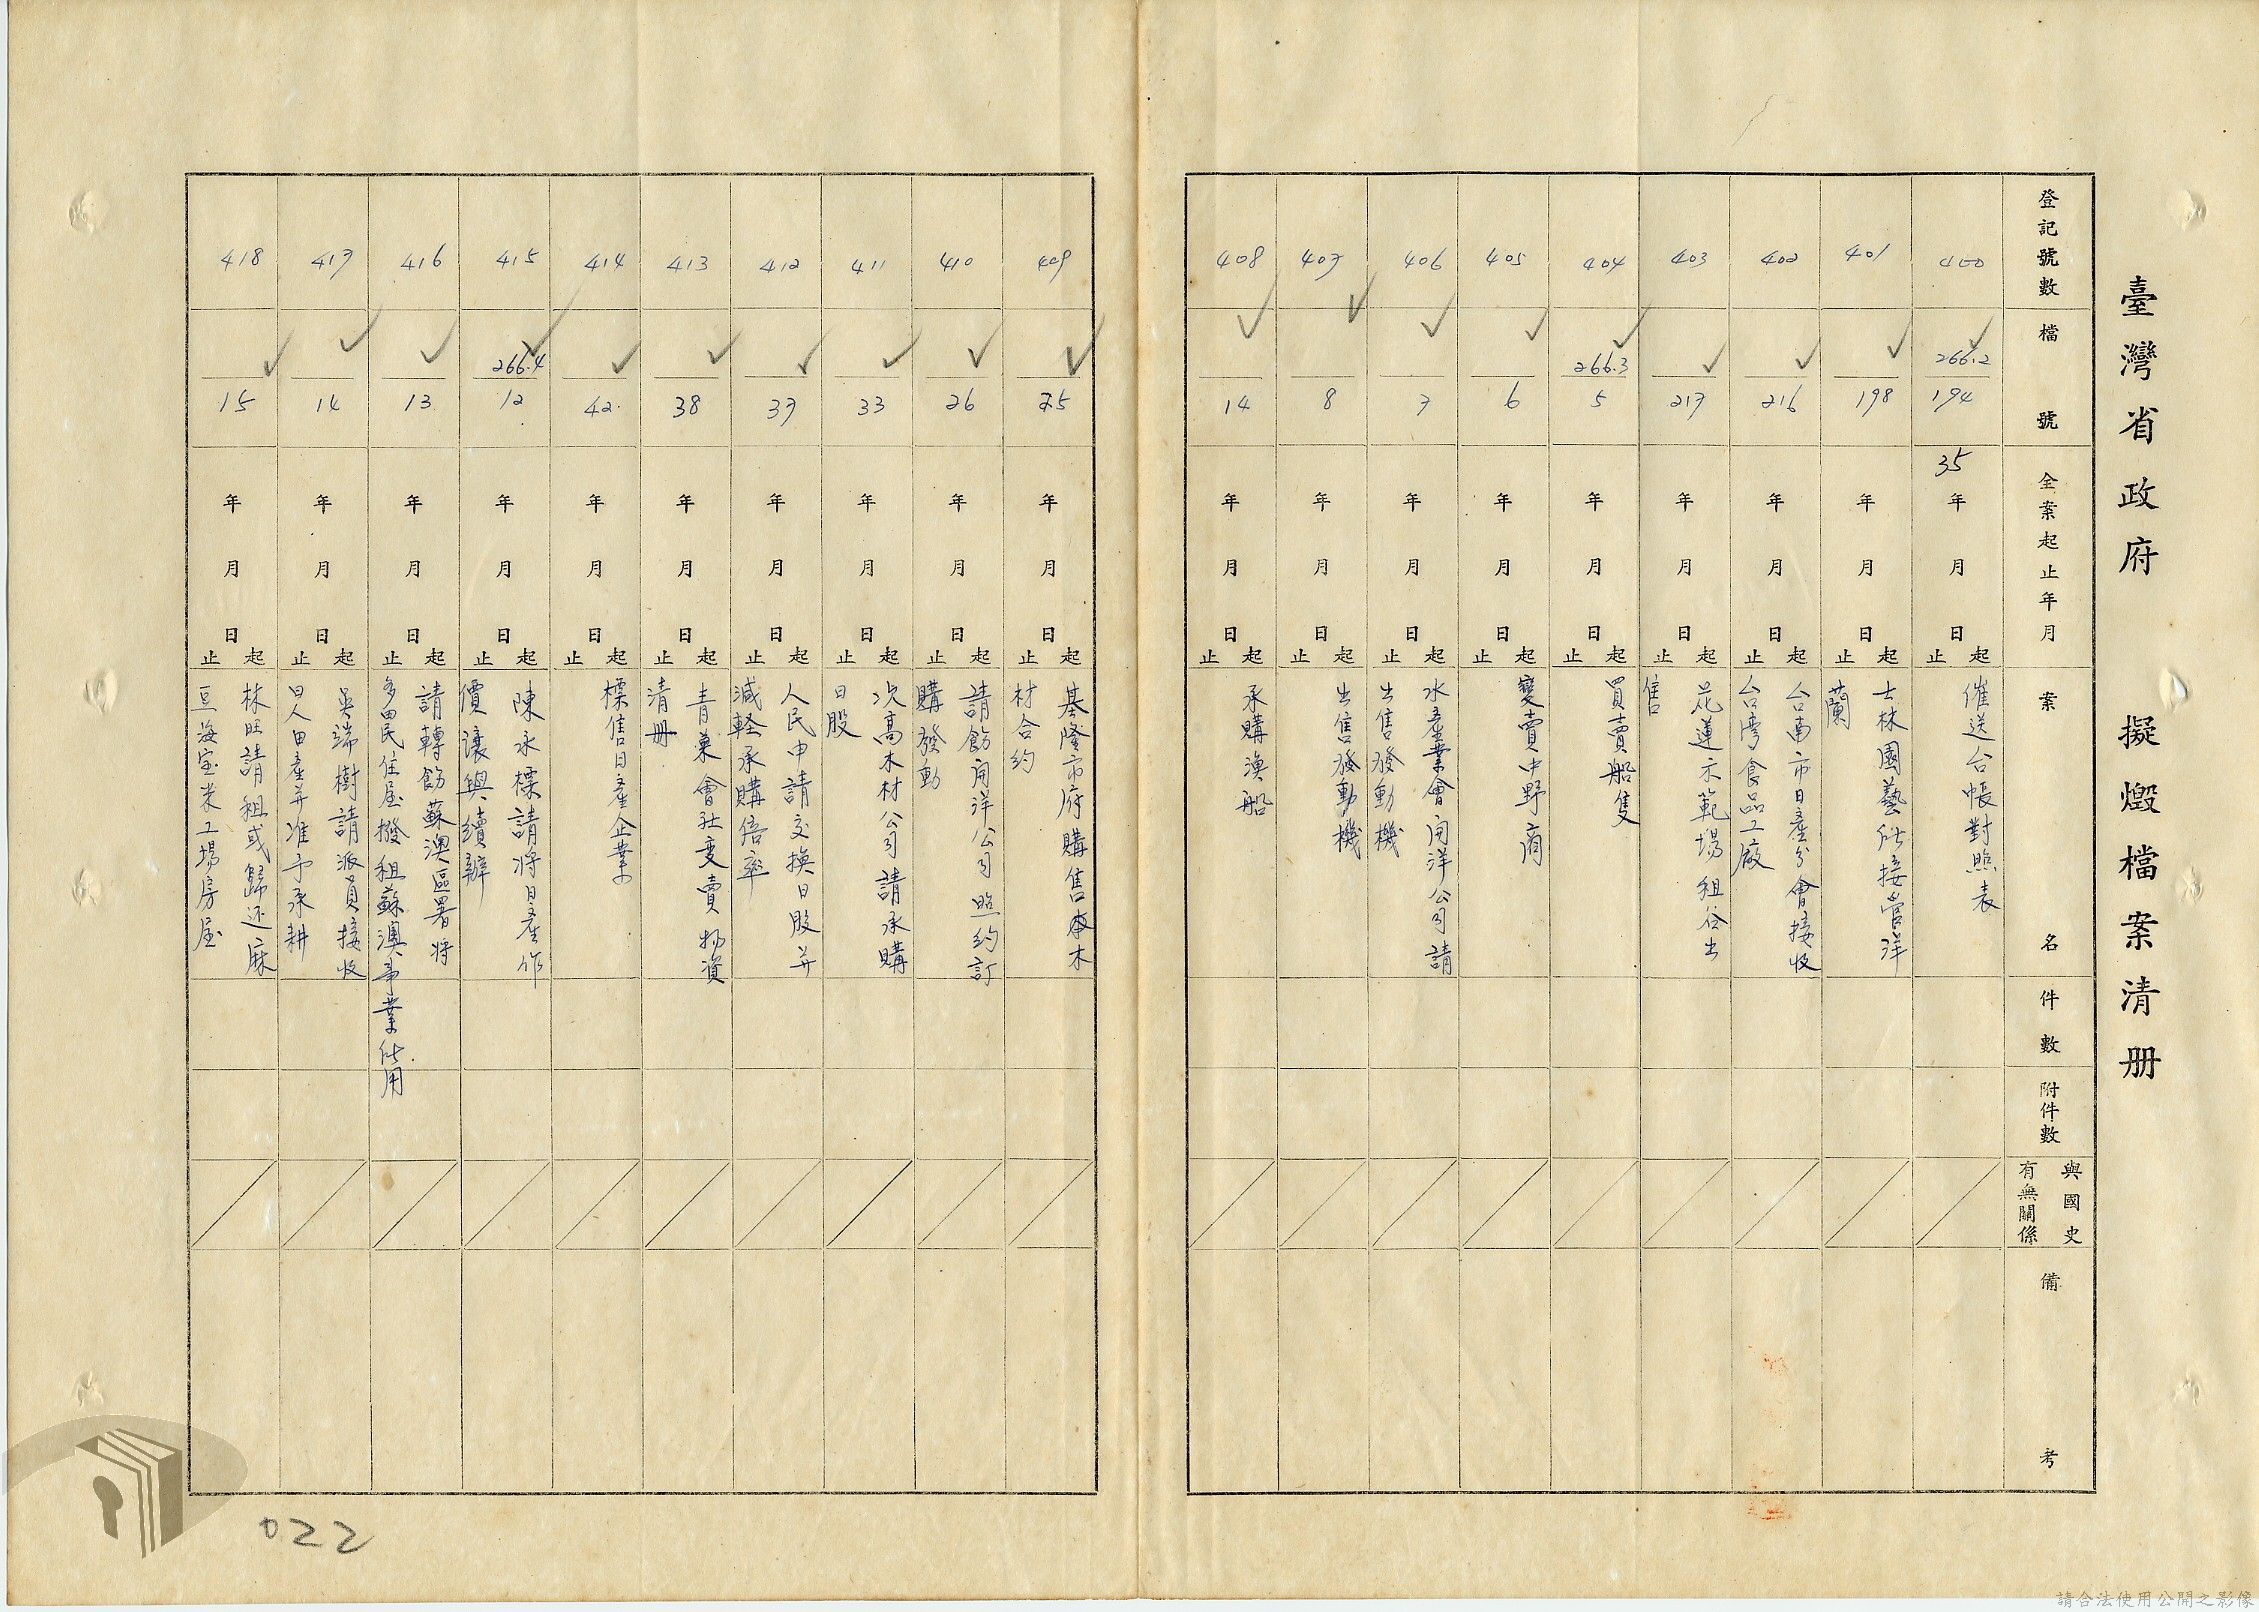 臺灣省政府　擬燬檔案清册
登記號數
檔號
全案起止年月
案名
件數
附件數
與國史
有無關係
備考
400
266.2
194
35年月日起止
催送台帳對照表
401
198
年月日起止
士林園藝所接管洋
蘭
402
216
年月日起止
台南市日產分會接收
台湾食品工廠
403
217
年月日起止
花蓮示範場租谷出
售
404
266.3
5
年月日起止
買賣船隻
405
6
年月日起止
變賣中野商
406
7
年月日起止
水產業會 洋公司請
出售發動機
407
8
年月日起止
出售發動機
408
14
年月日起止
承購漁船
409
25
年月日起止
基隆市府購售 木
材合約
410
26
年月日起止
請飭 洋公司照约訂
購發動
411
33
年月日起止
次高木材公司請承購
日股
412
37
年月日起止
人民申請交換日股并
減輕承購倍率
413
38
年月日起止
青菓會社变賣物資
清册
414
42
年月日起止
標售日產企業
415
266.4
12
年月日起止
陳永標請將日產作
價讓與續辦
416
13
年月日起止
請轉飭蘇澳區署將
多田民住屋撥租蘇澳事業所用
417
14
年月日起止
吳端樹請派員接收
日人田產并准予承耕
418
15
年月日起止
林旺請租或歸还麻
豆海宝米工場房屋
022
請合法使用公開之影像